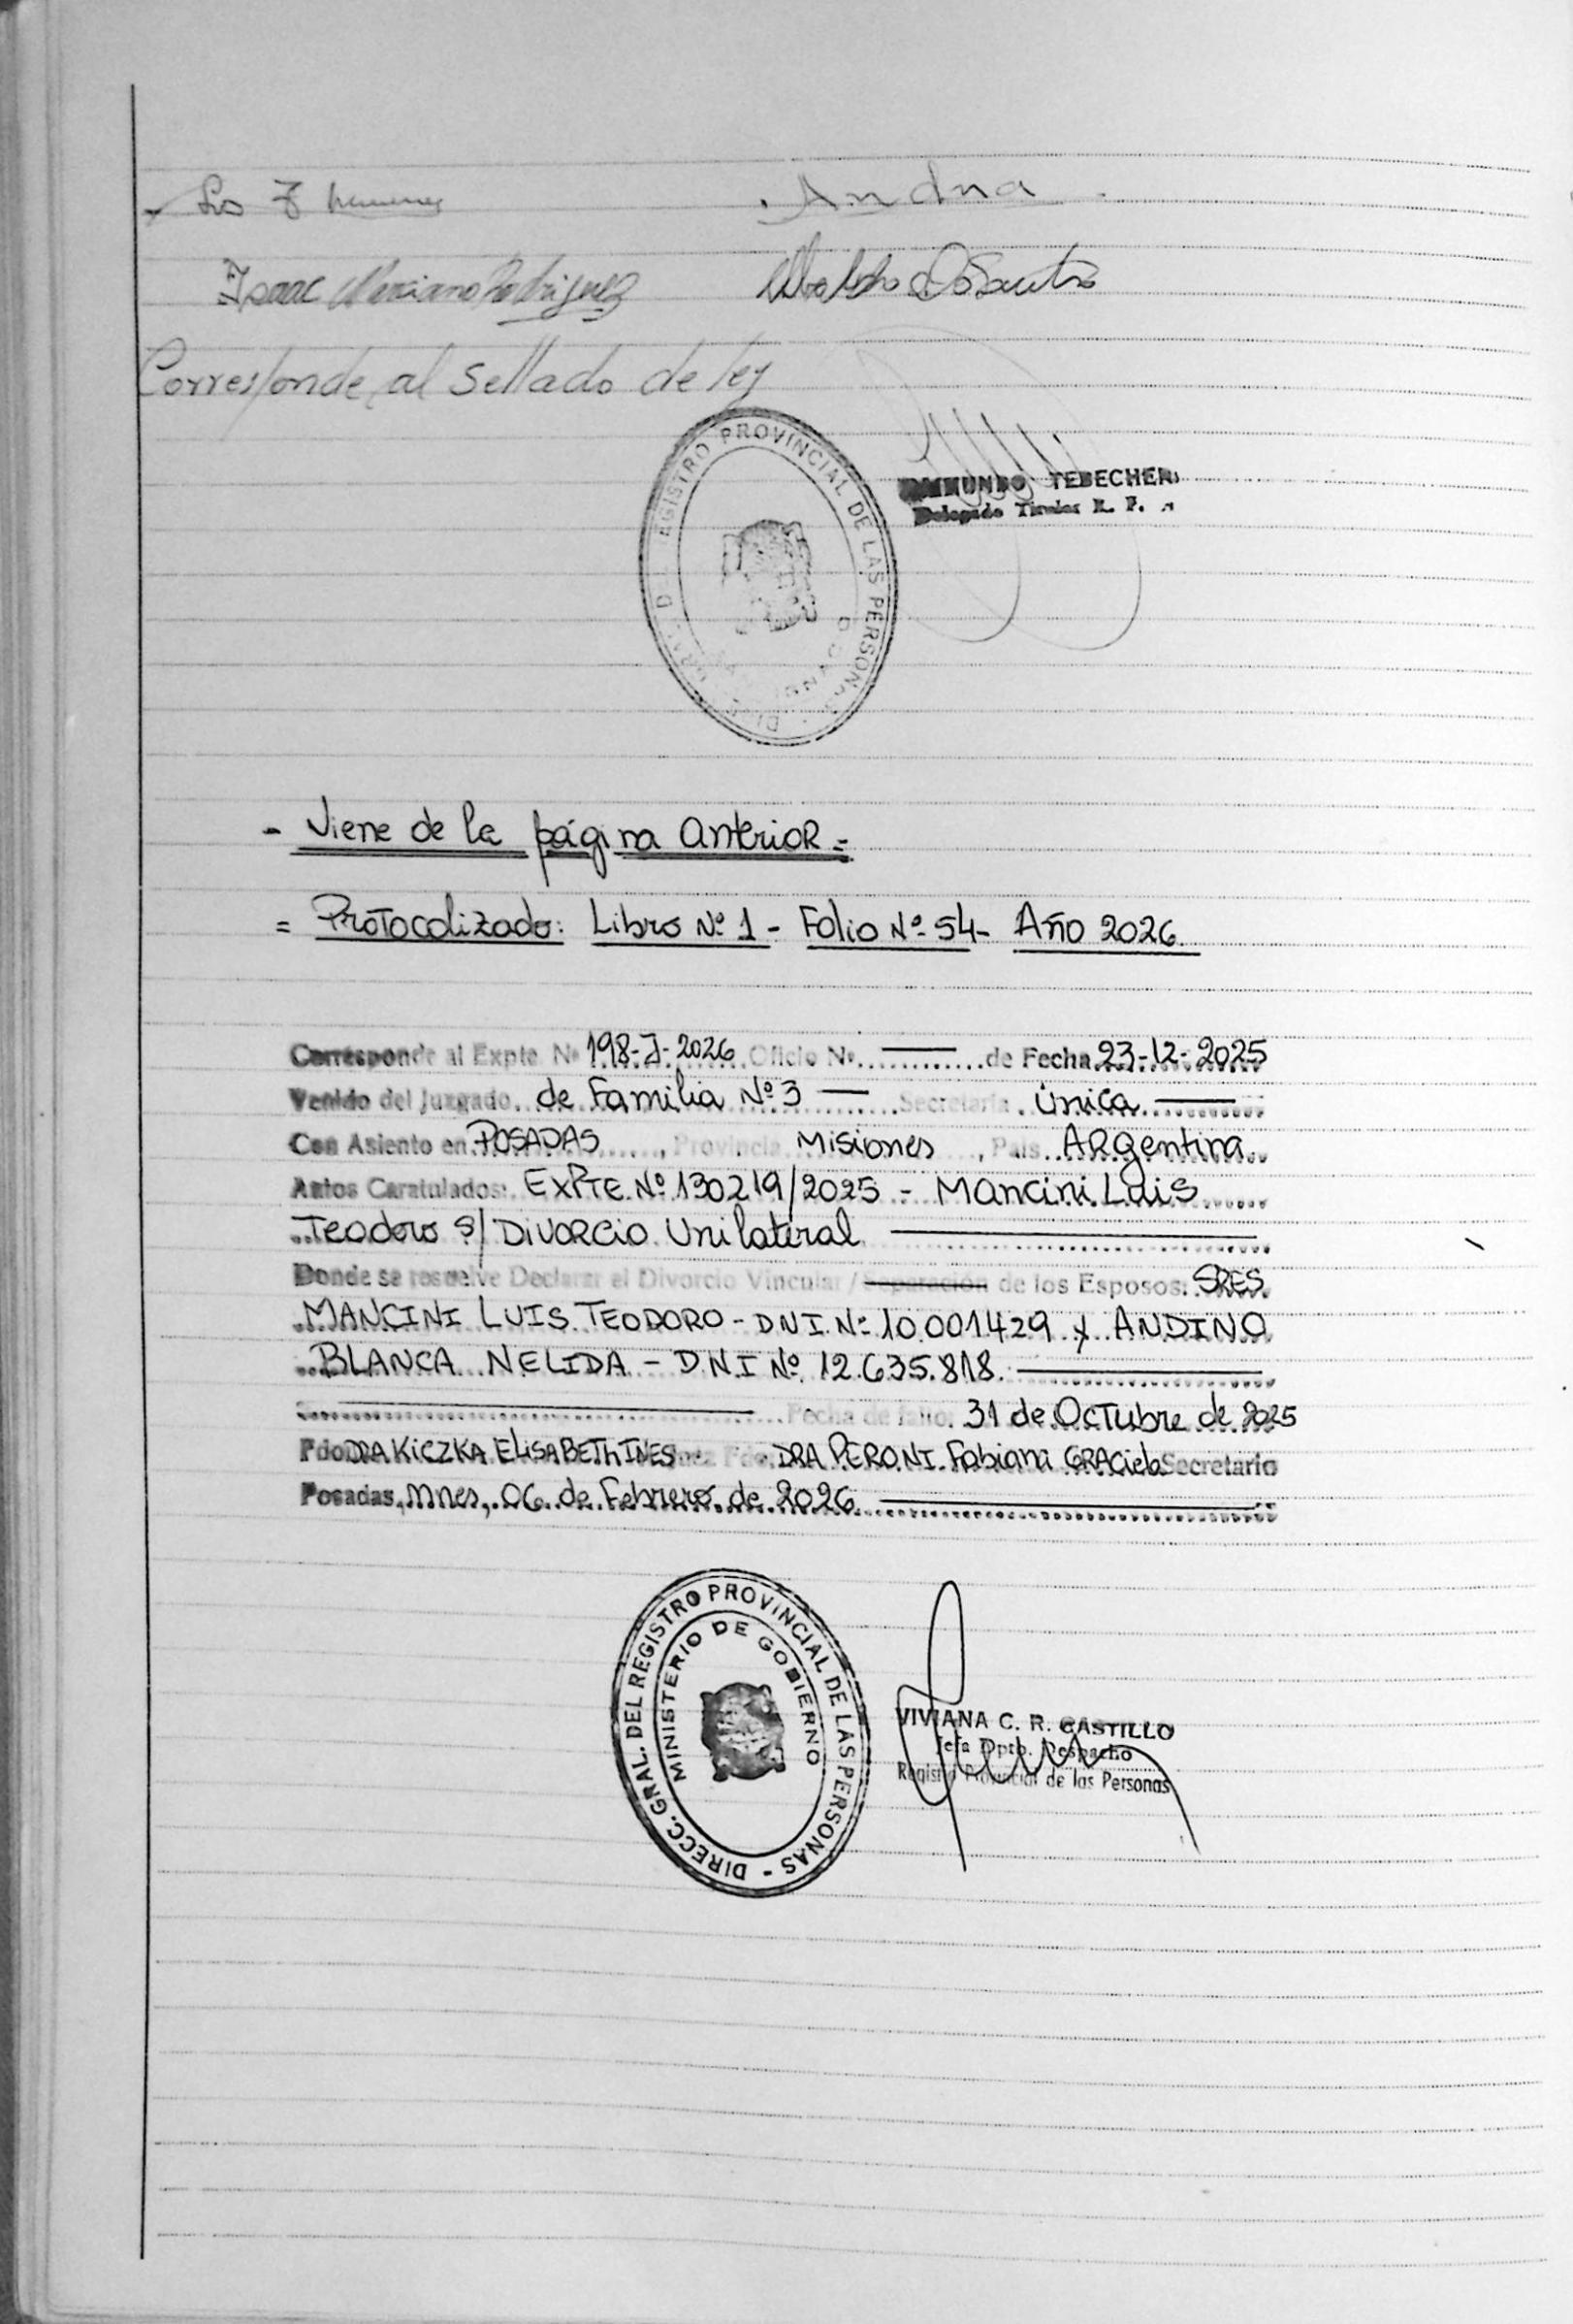 Andna
Isaac Mariano Rodriguez
Corresponde al sellado de ley
REGISTRO PROVINCIAL DE LAS PERSONAS
TEBECHER
Delegado Titular R. P.
- Viene de la página anterior =
= Protocolizado: Libro Nº 1 - Folio Nº 54 - Año 2026
Corresponde al Expte. Nº 198-J-2026 Oficio Nº ——— de Fecha 23-12-2025
Venido del Juzgado de Familia Nº 3 — Secretaría Única ———
Con Asiento en POSADAS, Provincia Misiones, País ARgentina
Autos Caratulados: EXPTE. Nº 130219/2025 - Mancini Luis
Teodoro S/ DIVORCIO Unilateral ———
Donde se resuelve Declarar el Divorcio Vincular / Separación de los Esposos: SRES.
MANCINI LUIS TEODORO - DNI. Nº 10.001.429 y ANDINO
BLANCA NELIDA - D.N.I Nº 12.635.818. ———
——— Fecha de fallo: 31 de Octubre de 2025
Fdo. DRA KICZKA ELISABETH INES Juez Fdo. DRA PERONI Fabiana GRACiela Secretario
Posadas, Mnes, 06 de Febrero de 2026 ———
DIRECC. GRAL. DEL REGISTRO PROVINCIAL DE LAS PERSONAS -
MINISTERIO DE GOBIERNO
VIVIANA C. R. CASTILLO
Jefa Dpto. Despacho
Registro Provincial de las Personas